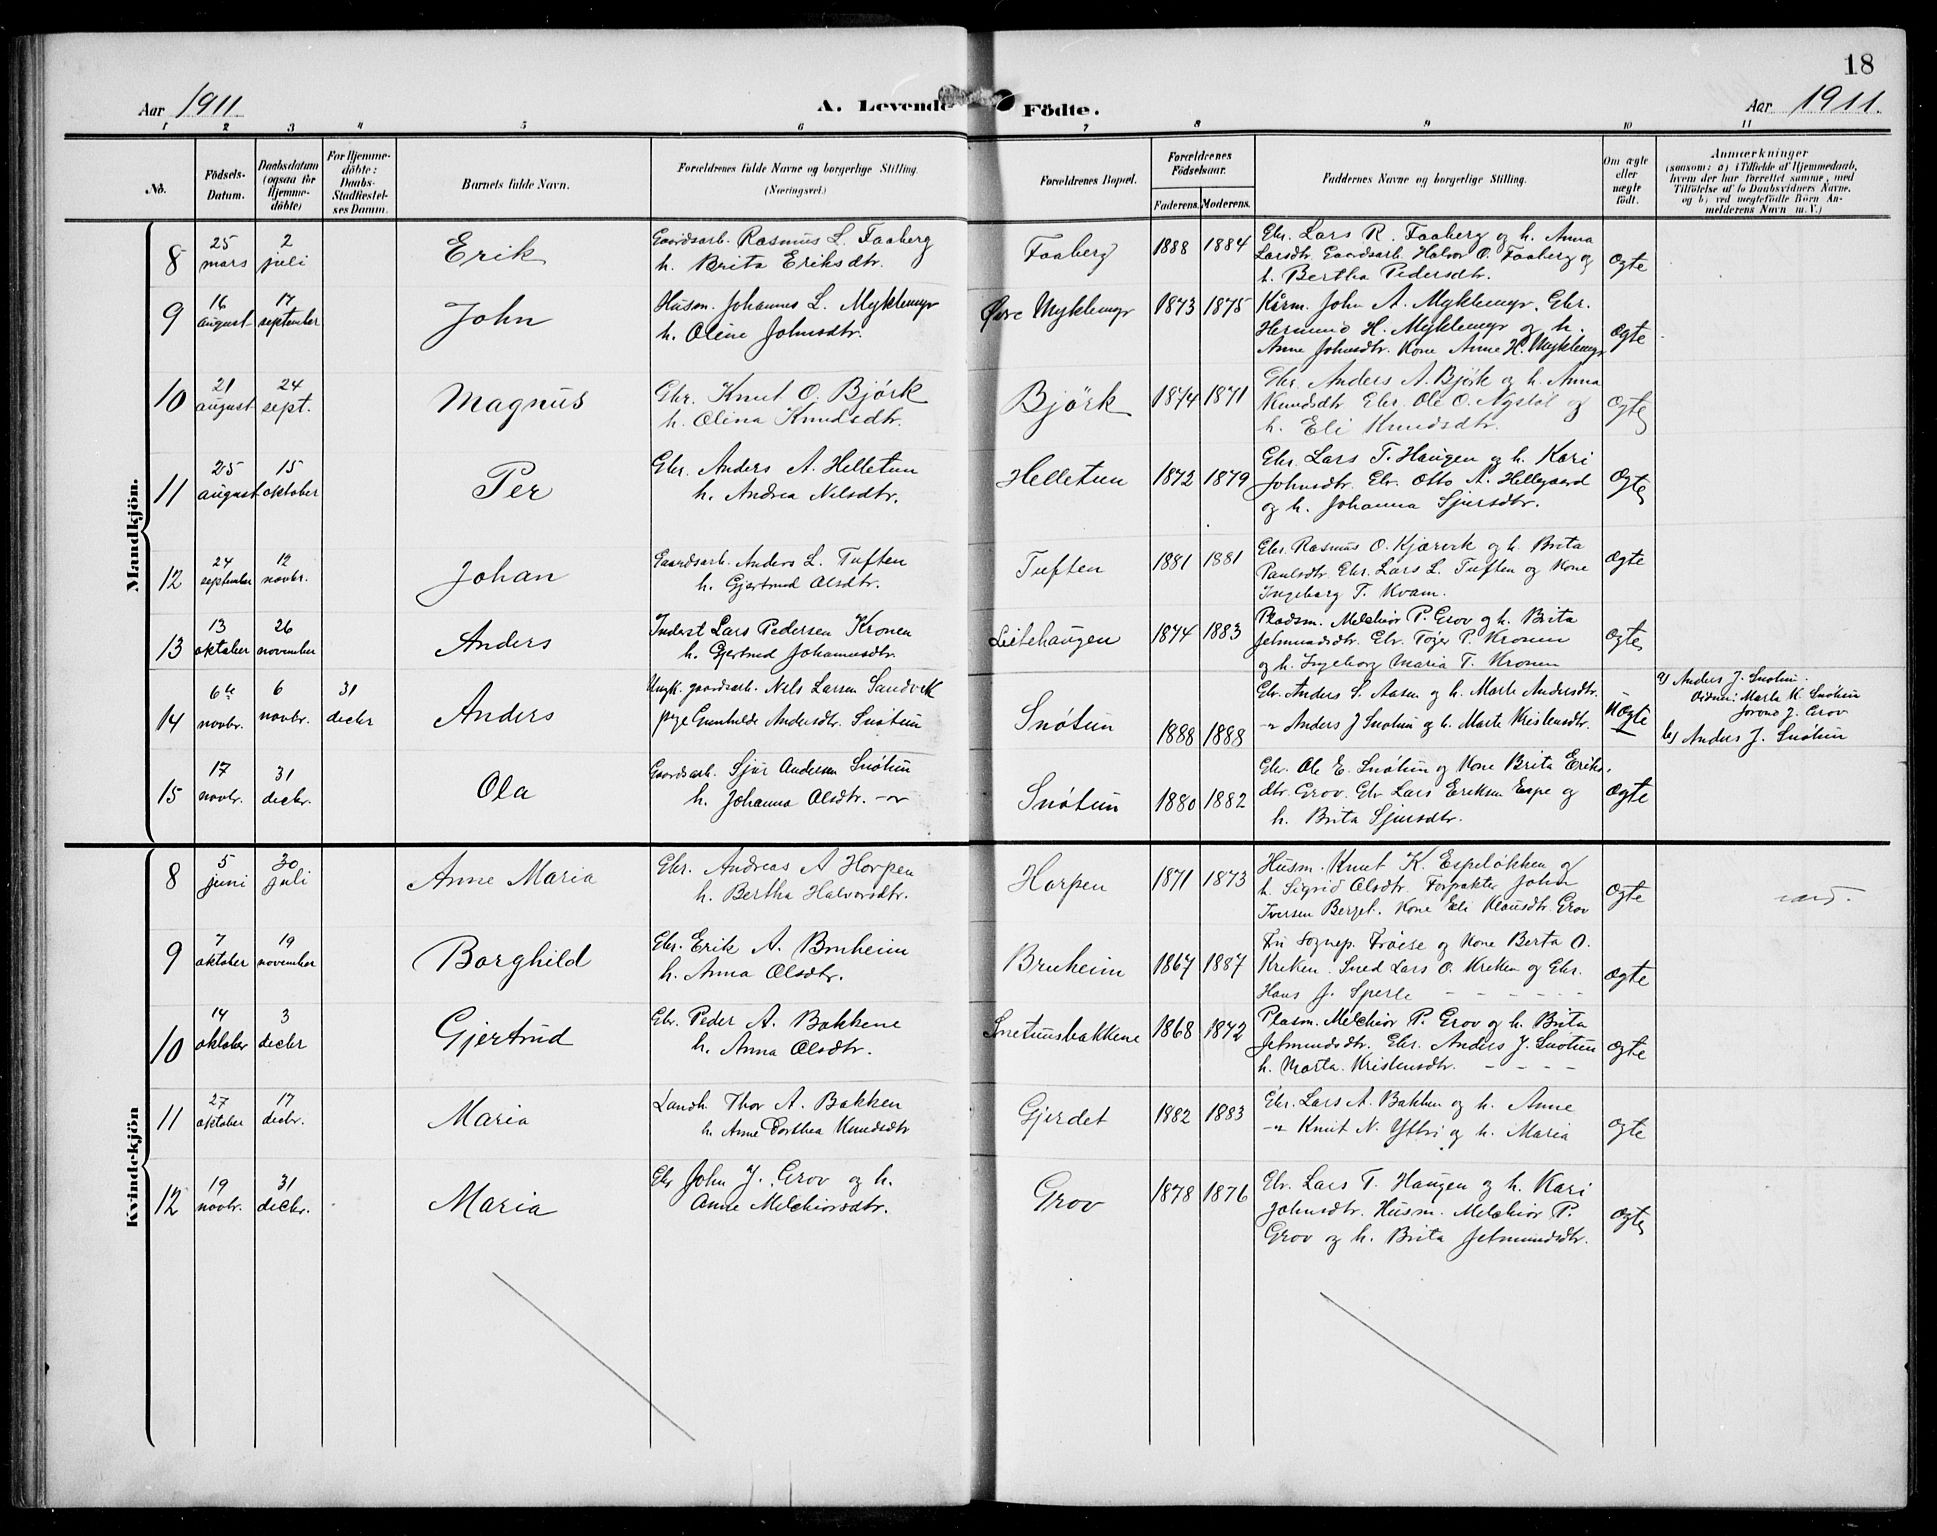 18
Aar 1911
A. Levende Födte.
Aar 1911.
1 2 3 4 5 6 7 8 9 10 11
No.
Födsels-Datum.
Daabsdatum (ogsaa for Hjemme-döbte)
For Hjemme-döbte: Daabs-Stadfæstel-ses Datum.
Barnets fulde Navn.
Forældrenes fulde Navne og borgerlige Stilling.
(Næringsvei.)
Forældrenes Bopæl.
Forældrenes Födselsaar.
Faderens. Moderens.
Faddernes Navne og borgerlige Stilling.
Om ægte eller uægte født.
Anmærkninger
(saasom: a) i Tilfælde af Hjemmedaab,
hvem der har forrettet samme, med
Tilföielse af to Daabsvidners Navne,
og b) ved uægtefödte Börn An-
melderens Navn m. V.)
Mandkjön.
8 25 mars 2 juli Erik
Gaardsarb. Rasmus L. Faaberg
h. Brita Eriksdtr.
Faaberg 1888 1884
Gbr. Lars R. Faaberg og h. Anna
Larsdtr. Gaardsarb. Halvor O. Faaberg og
h. Bertha Pedersdtr.
Ægte
9 16 august 17 september John
Husm. Johannes L. Myklemyr
h. Oline Johnsdtr.
Øvre Myklemyr 1873 1875
Kårm. John A. Myklemyr. Gbr.
Hermund H. Myklemyr og h.
Anne Johnsdtr. Kone Anne H. Myklemyr
Ægte
10 21 august 24 sept. Magnus
Gbr. Knut O. Bjørk
h. Olina Knudsdtr.
Bjørk 1874 1871
Gbr. Anders A. Bjørk og h. Anna
Knudsdtr. Gbr. Ole O. Nystøl og
h. Eli Knudsdtr.
Ægte
11 25 august 15 oktober Per
Gbr. Anders A. Helletun
h. Andrea Nilsdtr.
Helletun 1872 1879
Gbr. Lars T. Haugen og h. Kari
Johnsdtr. Gbr. Otto A. Hellegaard
og h. Johanna Sjursdtr.
Ægte
12 24 september 12 novbr. Johan
Gaardsarb. Anders L. Tuften
h. Gjertrud Olsdtr.
Tuften 1881 1881
Gbr. Rasmus O. Kjærvik og h. Brita
Paulsdtr. Gbr. Lars L. Tuften og Kone
Ingeborg T. Kvam.
Ægte
13 13 oktober 26 november Anders
Inderst Lars Pedersen Kronen
h. Gjertrud Johannesdtr.
Leitehaugen 1874 1883
Pladsm. Melchior P. Grov og h. Brita
Jetmundsdtr. Gbr. Tøger P. Kronen
og h. Ingeborg Maria T. Kronen
Ægte
14 6te novbr. 6 novbr. 31 decbr Anders
Ungk. gaardsarb. Nils Larsen Sandvik
pige Gunhilde Andersdtr. Snøtun
Snøtun 1888 1888
Gbr. Anders S. Aasen og h. Marte Andersdtr.
-"- Anders J Snøtun og h. Marte Kristensdtr.
Uægte
a) Anders J. Snøtun.
Vidner: Marte K. Snøtun
J. Grov
b) Anders J. Snøtun
15 17 novbr. 31 decbr. Ola
Gaardsarb. Sjur Andersen Snøtun
h. Johanna Olsdtr. -"-
Snøtun 1880 1882
Gbr. Ole E. Snøtun og Kone Brita Eriks-
dtr. Grov. Gbr Lars Eriksen Espe og
h. Brita Sjursdtr.
Ægte
Kvindekjön
8 5 juni 30 juli Anne Maria
Gbr. Andreas A Horpen
h. Bertha Halvorsdtr.
Horpen 1871 1873
Husm. Knut K. Espeløkken og
h. Sigrid Olsdtr. Forpakter John
Iversen Berget. Kone Eli Klausdtr. Grov
Ægte
9 7 oktober 19 november Borghild
Gbr. Erik A. Bruheim
h. Anna Olsdtr.
Bruheim 1867 1887
Fru Sognep. og Kone Berta O.
Kreken. Sned Lars O. Kreken og Gbr.
Hans J. Sperle - - - - - -
Ægte
10 14 oktober 3 decbr Gjertrud
Gbr. Peder A. Bakkene
h. Anna Olsdtr.
Snetunsbakkene 1868 1872
Plasm. Melchior P. Grov og h. Brita
Jetmundsdtr. Gbr. Anders J. Snøtun
h. Marta Kristensdtr. - - - -
Ægte
11 27 oktober 17 decbr. Maria
Landh. Thor A. Bakken
h. Anne Dorthea Knudsdtr
Gjerdet 1882 1883
Gbr. Lars A. Bakken og h. Anne
-"- Knut N. Yttri og h. Maria
Ægte
12 19 novbr. 31 decbr. Maria
Gbr John J. Grov og h.
Anne Melchiorsdtr.
Grov 1878 1876
Gbr. Lars T. Haugen og h. Kari
Johnsdtr. Husm. Melchior P.
Grov og h. Brita Jetmundsdtr.
Ægte